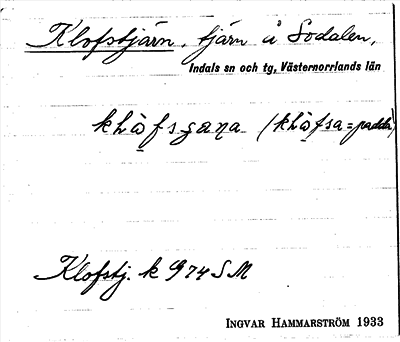 Klofstjärn, tjärn å Sodalen,
Indals sn och tg, Västernorrlands län
(khåfsa = padda)
Klofstj. k 974 SM
INGVAR HAMMARSTRÖM 1933